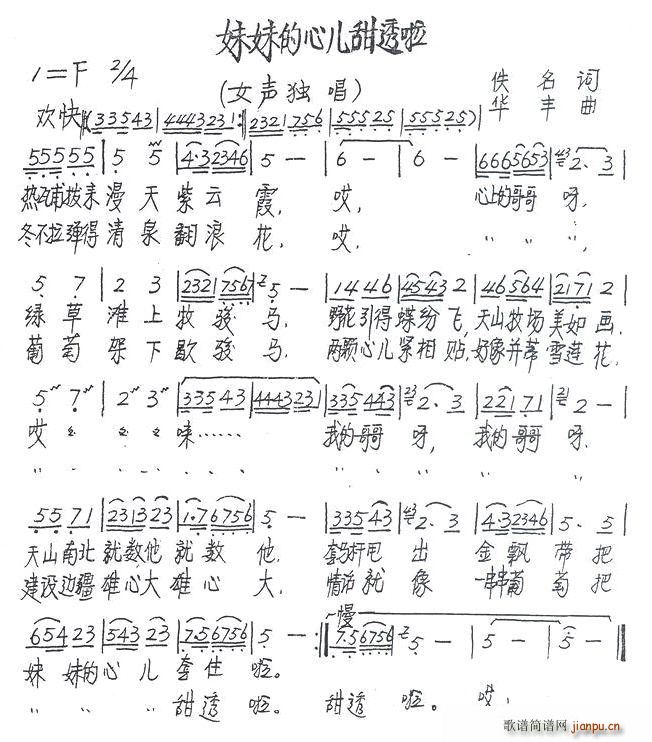 妹妹的心儿甜透啦
1=F 2/4
(女声独唱)
佚名词
华丰曲
欢快
(33543|4443231:|2321756|555525|555525)|
55555|5 5|4·32346|5 —|6 —|6 —|6665653|2、3|
热瓦甫拨来漫天紫云霞，哎，心上的哥哥呀，
冬不拉弹得清泉翻浪花，哎，〃 〃 〃
5 7|2 3|2321756|5 —|1446|45432|46564|21712|
绿草滩上牧骏马，野花引得蝶纷飞，天山牧场美如画，
葡萄架下歇骏马，两颗心儿紧相贴，好象并蒂雪莲花，
5 7|2 3|33543|4443231|335443|2、3|22171|2 —|
哎〃〃〃咪……我的哥哥呀，我的哥哥呀，
〃 〃 〃 〃 〃 〃 〃 〃
5571|231323|1·76756|5 —|33543|2、3|4·32346|5、5|
天山南北就数他就数他，套马杆甩出金飘带把
建设边疆雄心大雄心大，情话就像一串串葡萄把
慢
65423|54323|7·56756|5 —:|7·56756|5 —|5 —|5 —|
妹妹的心儿套住啦。
〃 〃 〃 〃 甜透啦。甜透啦。哎，
歌谱简谱网
jianpu.cn